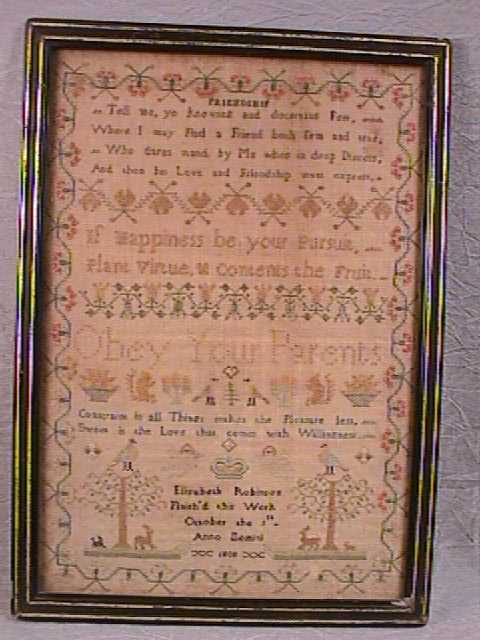 FRIENDSHIP
Tell me, ye knowing and discerning Few,
Where I may Find a Friend both firm and true,
Who dares stand by Me when in deep Distress,
And then his Love and Friendship most express.
If Happiness be your Pursuit,
Plant Virtue, & Content's the Fruit
Obey Your Parents
Constraint in all Things makes the Pleasure less,
Sweet is the Love that comes with Willingness
Elizabeth Robinson
Finish'd this Work
October the
Anno Domini